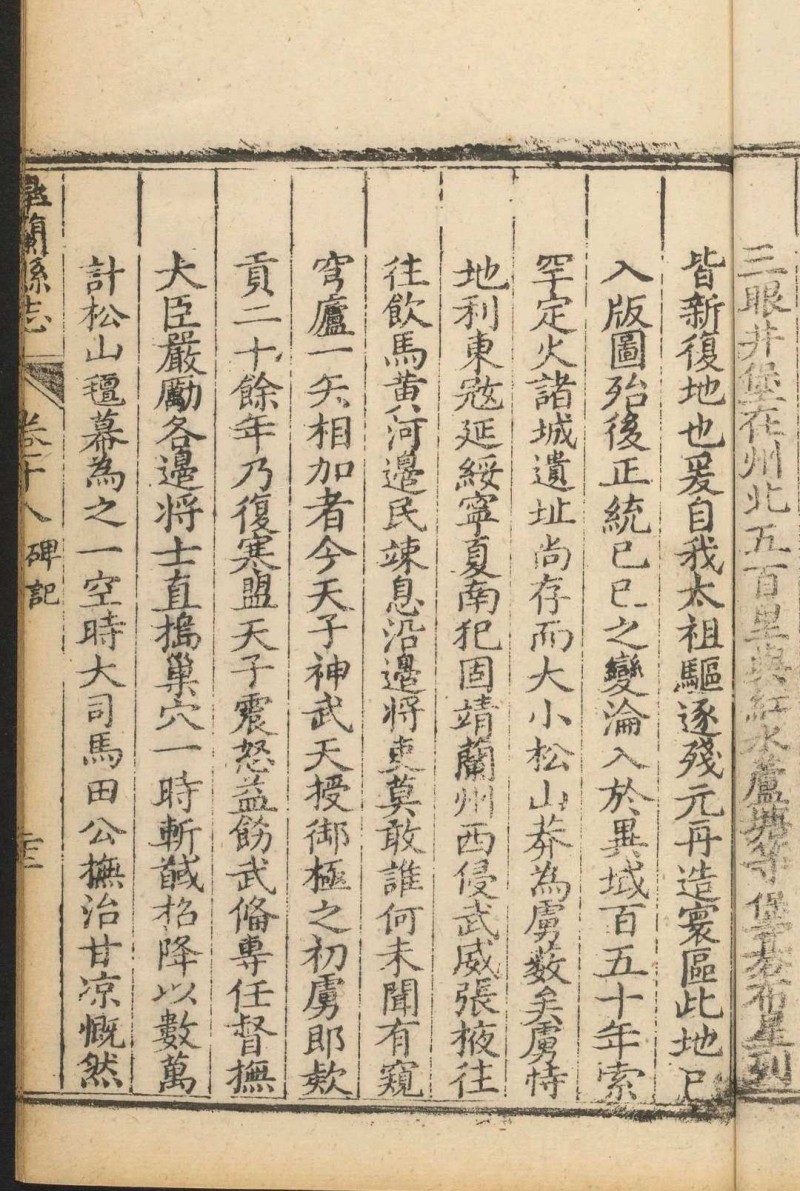 三眼井堡在州北五百里與紅水蘆塘等堡棊布星列
皆新復地也爰自我太祖驅逐殘元再造寰區此地已
入版圖殆後正統已巳之變淪入於異域百五十年索
罕定火諸城遺址尚存而大小松山莽為虜藪矣虜恃
地利東寇延綏寧夏南犯固靖蘭州西侵武威張掖往
往飲馬黃河邉民竦息沿邉將吏莫敢誰何未聞有窺
穹廬一矢相加者今天子神武天授御極之初虜即欵
貢二十餘年乃復寒盟天子震怒益飭武俻專任督撫
大臣嚴勵各邉將士直搗巢穴一時斬馘招降以數萬
計松山氊幕為之一空時大司馬田公撫治甘凉慨然
皋蘭縣志
卷十八
碑記